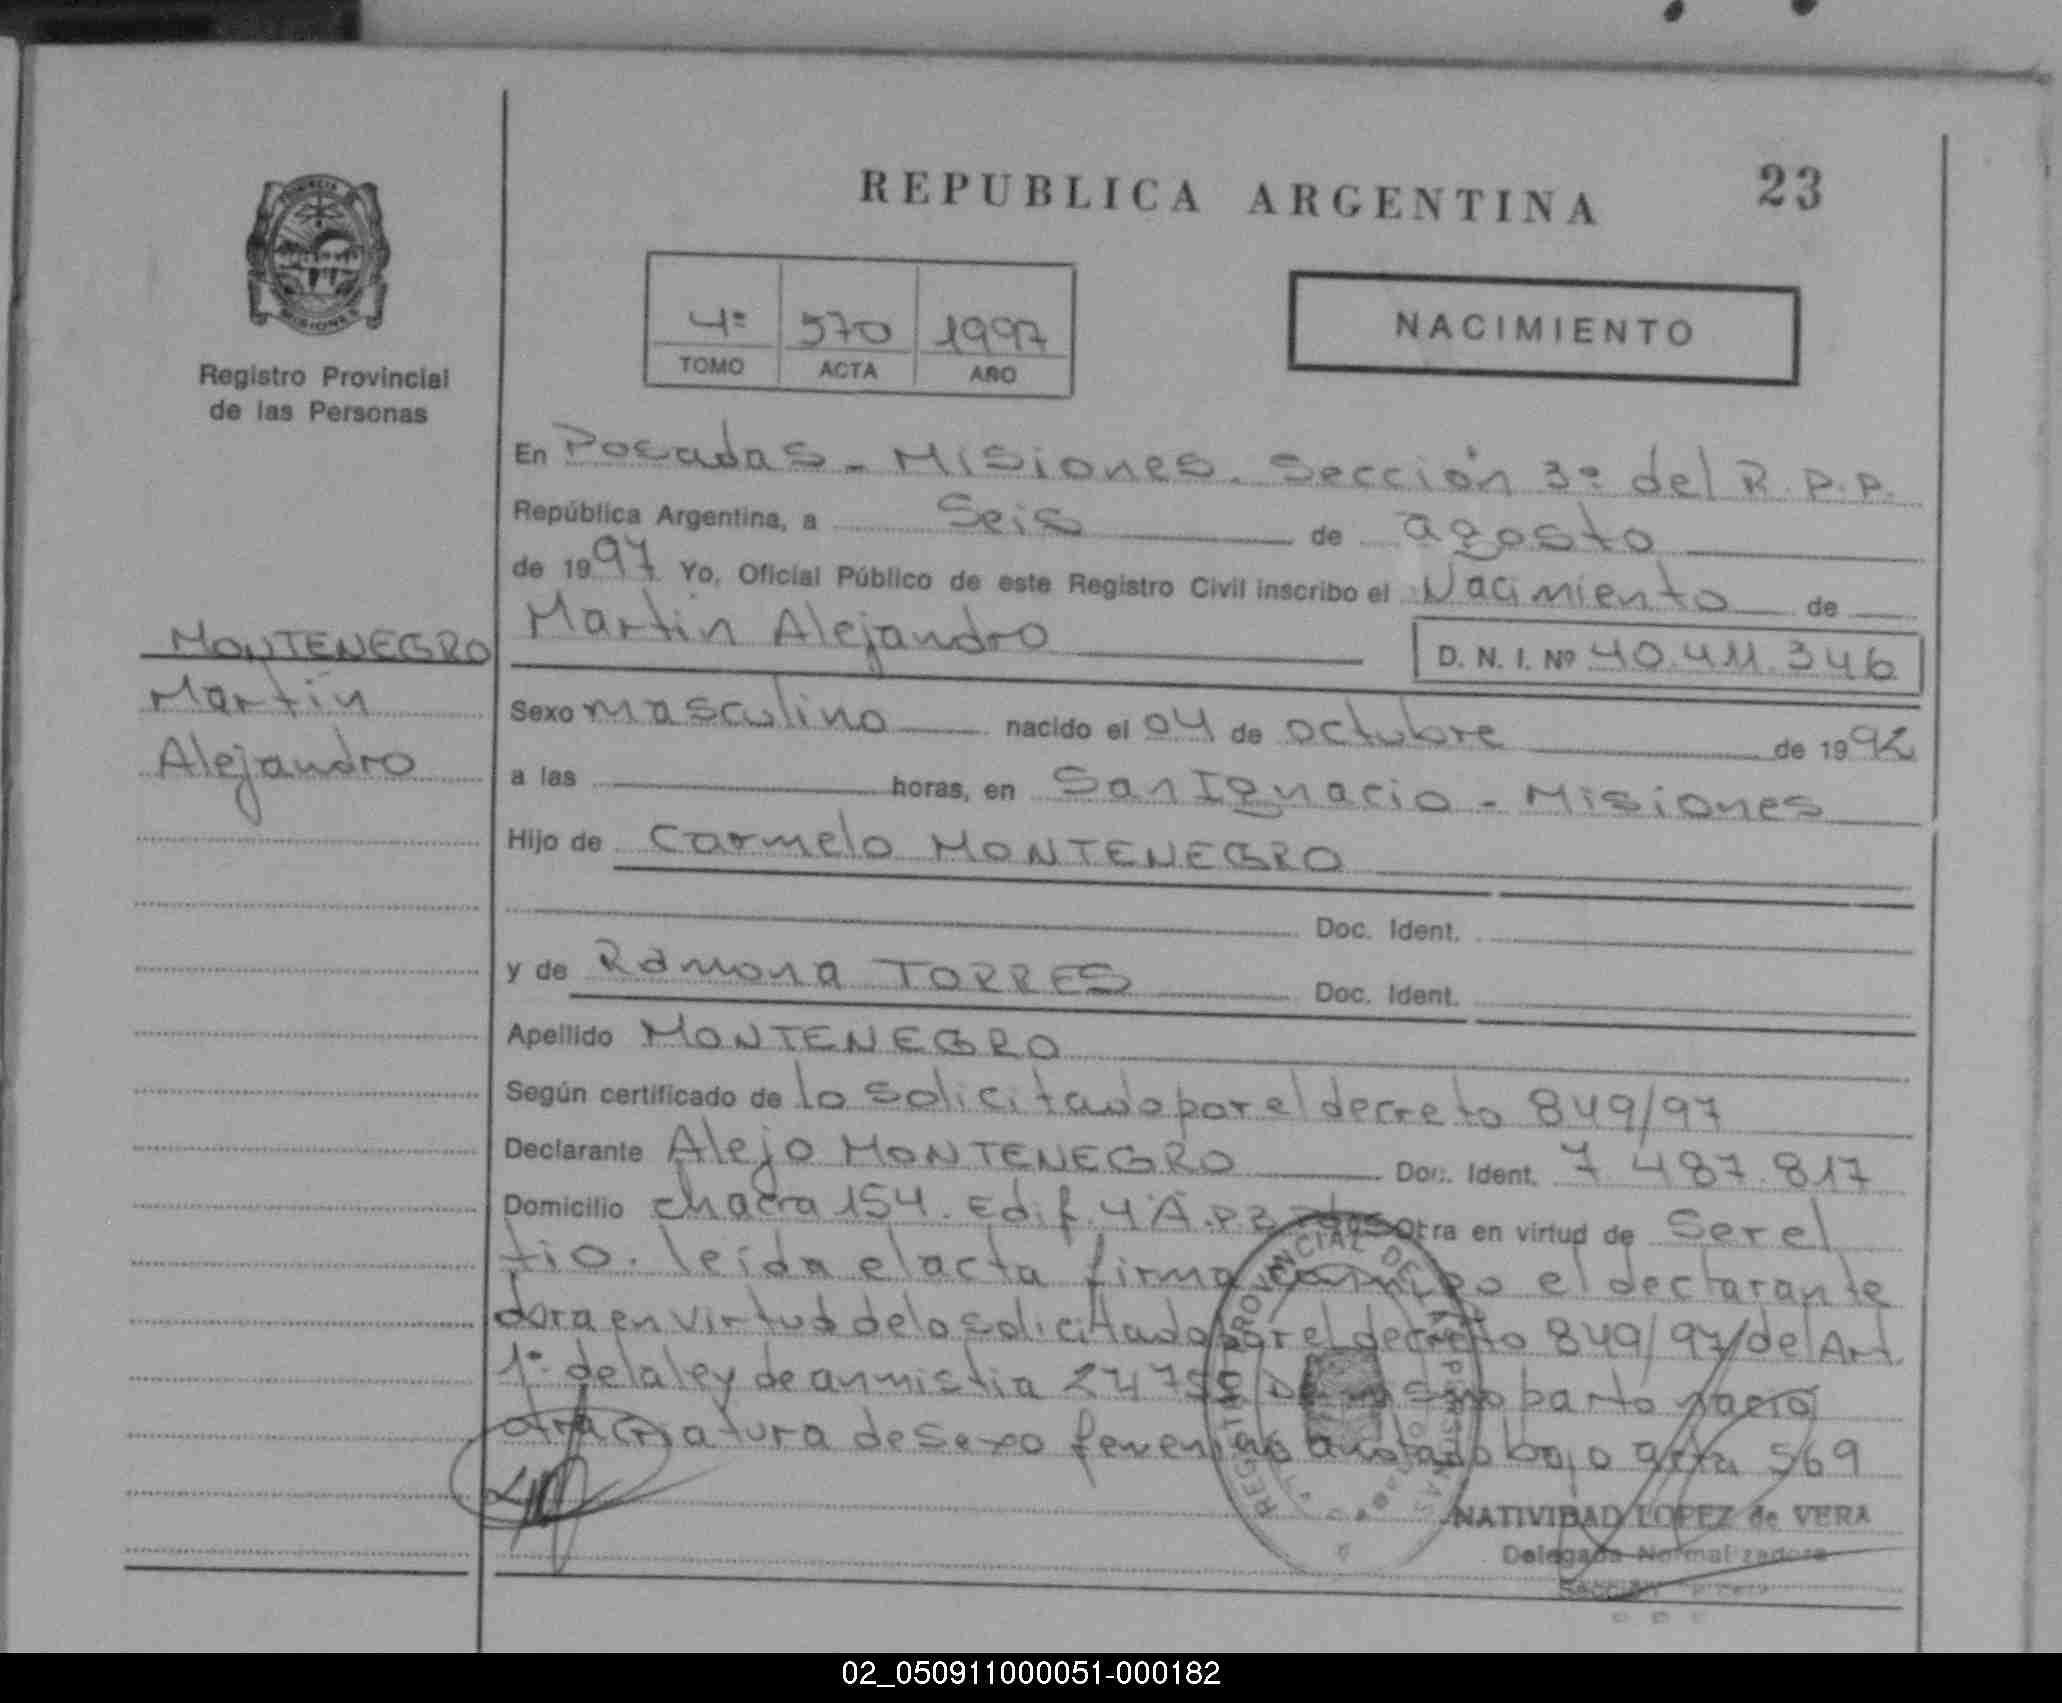 REPUBLICA ARGENTINA
23
PROVINCIA
MISIONES
Registro Provincial
de las Personas
4º 570 1997
TOMO ACTA AÑO
NACIMIENTO
En Posadas - Misiones. Sección 3º del R.P.P.
República Argentina, a Seis de agosto
de 1997 Yo, Oficial Público de este Registro Civil inscribo el Nacimiento de
Martín Alejandro D. N. I. Nº 40.411.346
MONTENEGRO
Martín
Alejandro
Sexo masculino nacido el 04 de octubre de 1992
a las horas, en San Ignacio - Misiones
Hijo de Carmelo MONTENEGRO
Doc. Ident.
y de Ramona TORRES Doc. Ident.
Apellido MONTENEGRO
Según certificado de lo solicitado por el decreto 849/97
Declarante Alejo MONTENEGRO Doc. Ident. 7.487.817
Domicilio chacra 154. Edif. 4 A. Obra en virtud de Ser el
tio. leída el acta firma conmigo el declarante
obra en virtud de lo solicitado por el decreto 849/97 del Art.
1º de la ley de amnistia 24755 Del mismo parto nacio
otra criatura de sexo femenino anotado bajo acta 569
REGISTRO PROVINCIAL DE LAS PERSONAS
NATIVIDAD LOPEZ de VERA
Delegada Normalizadora
Sección Tercera
02_050911000051-000182